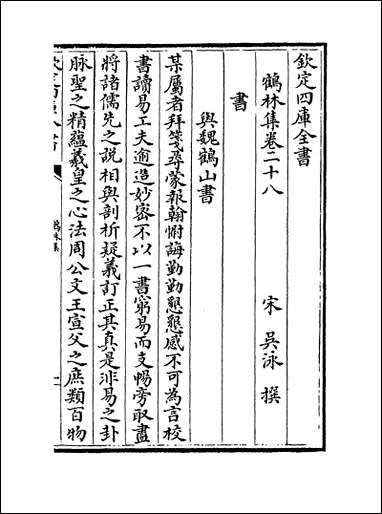 欽定四庫全書
鶴林集卷二十八
宋 吳泳 撰
書
與魏鶴山書
某屬者拜箋尋蒙報翰惏誨勤勤懇懇感不可為言校
書讀易工夫逾造妙密不以一書窮易而支暢旁取盡
將諸儒先之說相與剖析疑義訂正其真是非易之卦
脉聖之精蘊羲皇之心法周公文王宣父之庶類百物
鶴林集